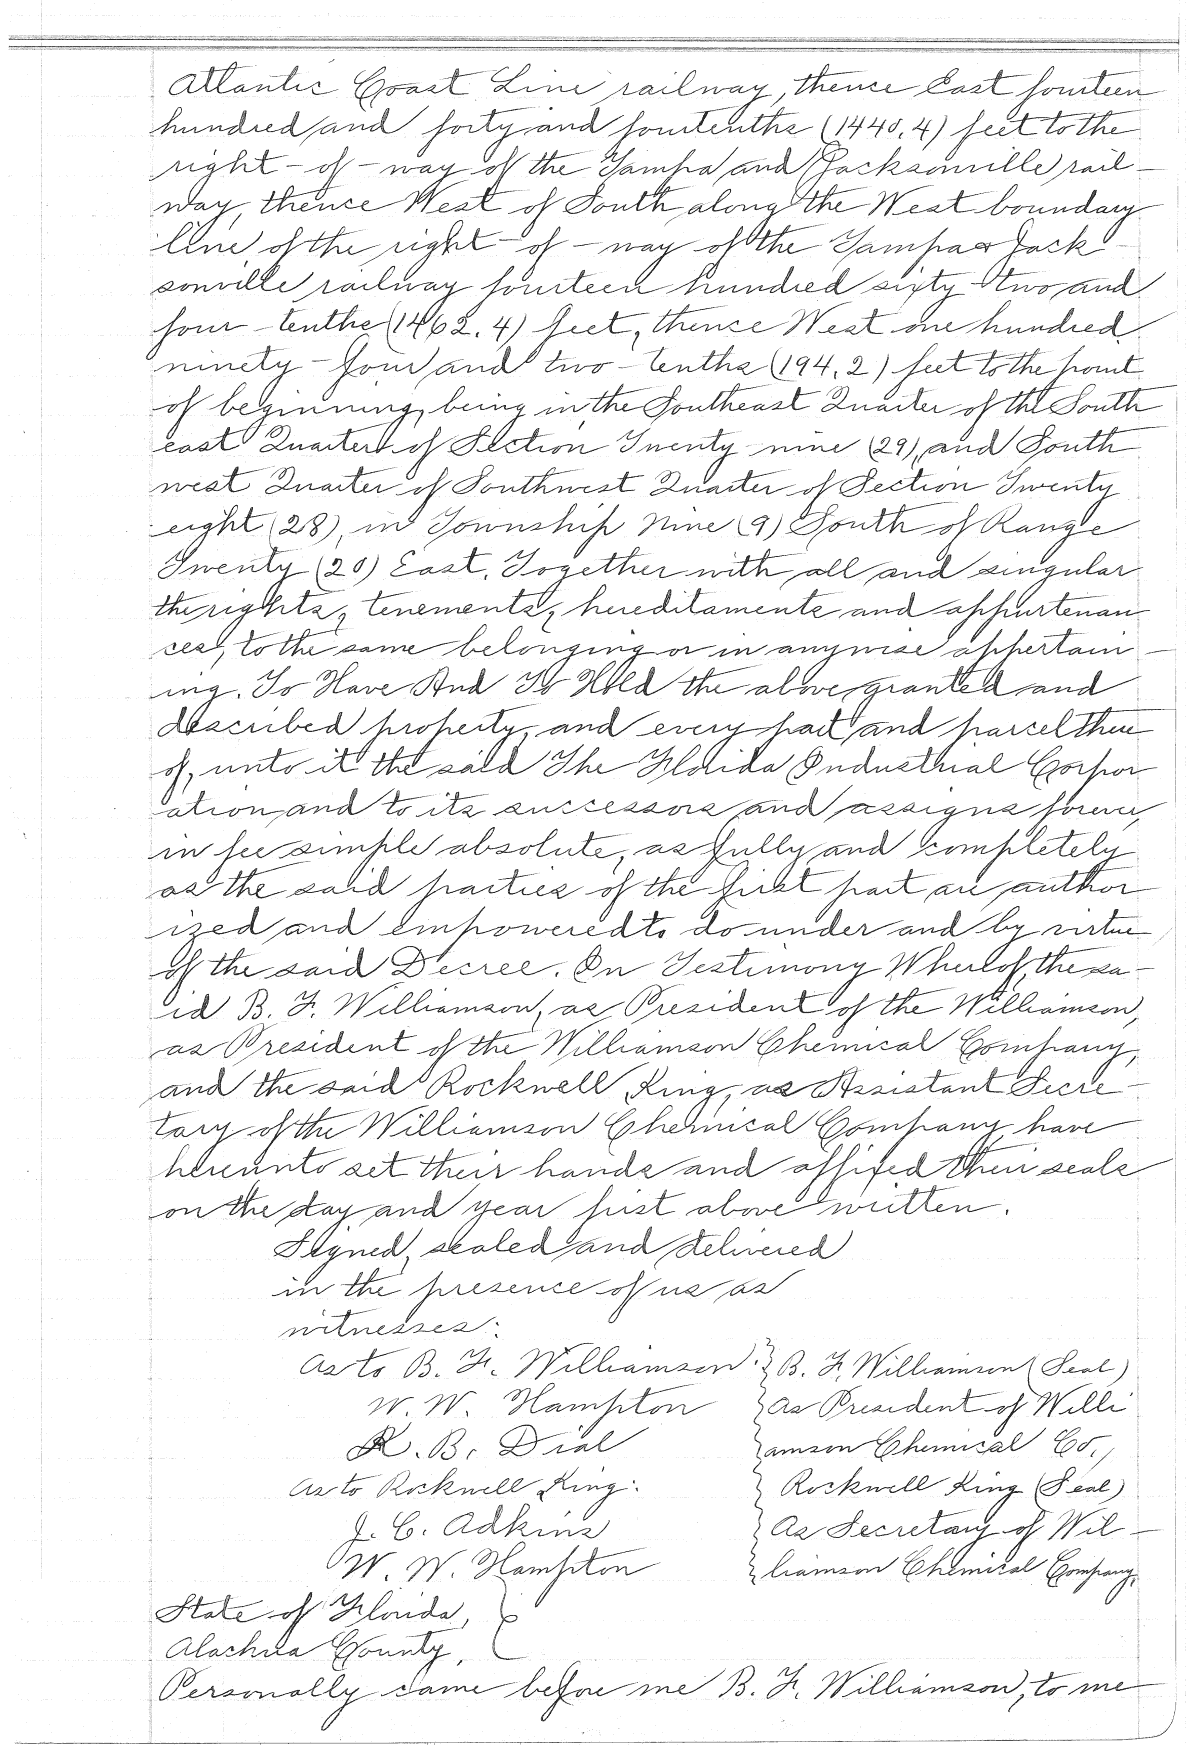 Atlantic Coast Line railway, thence East fourteen
hundred and forty and fourtenths (1440.4) feet to the
right-of-way of the Tampa and Jacksonville rail-
way, thence West of South along the West boundary
line of the right-of-way of the Tampa & Jack-
sonville railway fourteen hundred sixty-two and
four-tenths (1462.4) feet, thence West one hundred
ninety-four and two-tenths (194.2) feet to the point
of beginning, being in the Southeast Quarter of the South
east Quarter of Section Twenty-nine (29), and South
west Quarter of Southwest Quarter of Section Twenty
eight (28), in Township Nine (9) South of Range
Twenty (20) East. Together with all and singular
the rights, tenements, hereditaments and appurtenan
ces, to the same belonging or in anywise appertain-
ing. To Have And To Hold the above granted and
described property, and every part and parcel there
of, unto it the said The Florida Industrial Corpor
ation and to its successors and assigns forever,
in fee simple absolute, as fully and completely
as the said parties of the first part are author
ized and empowered to do under and by virtue
of the said Decree. In Testimony Whereof, the sa-
id B. F. Williamson, as President of the Williamson,
as President of the Williamson Chemical Company,
and the said Rockwell King, as Assistant Secre-
tary of the Williamson Chemical Company, have
hereunto set their hands and affixed their seals
on the day and year first above written.
Signed, sealed and delivered
in the presence of us as
witnesses:
As to B. F. Williamson: } B. F. Williamson (Seal)
W. W. Hampton } As President of Willi
R. B. Dial } amson Chemical Co.,
As to Rockwell King: } Rockwell King (Seal)
J. C. Adkins } As Secretary of Wil-
W. W. Hampton } liamson Chemical Company,
State of Florida, }
Alachua County, }
Personally came before me B. F. Williamson, to me